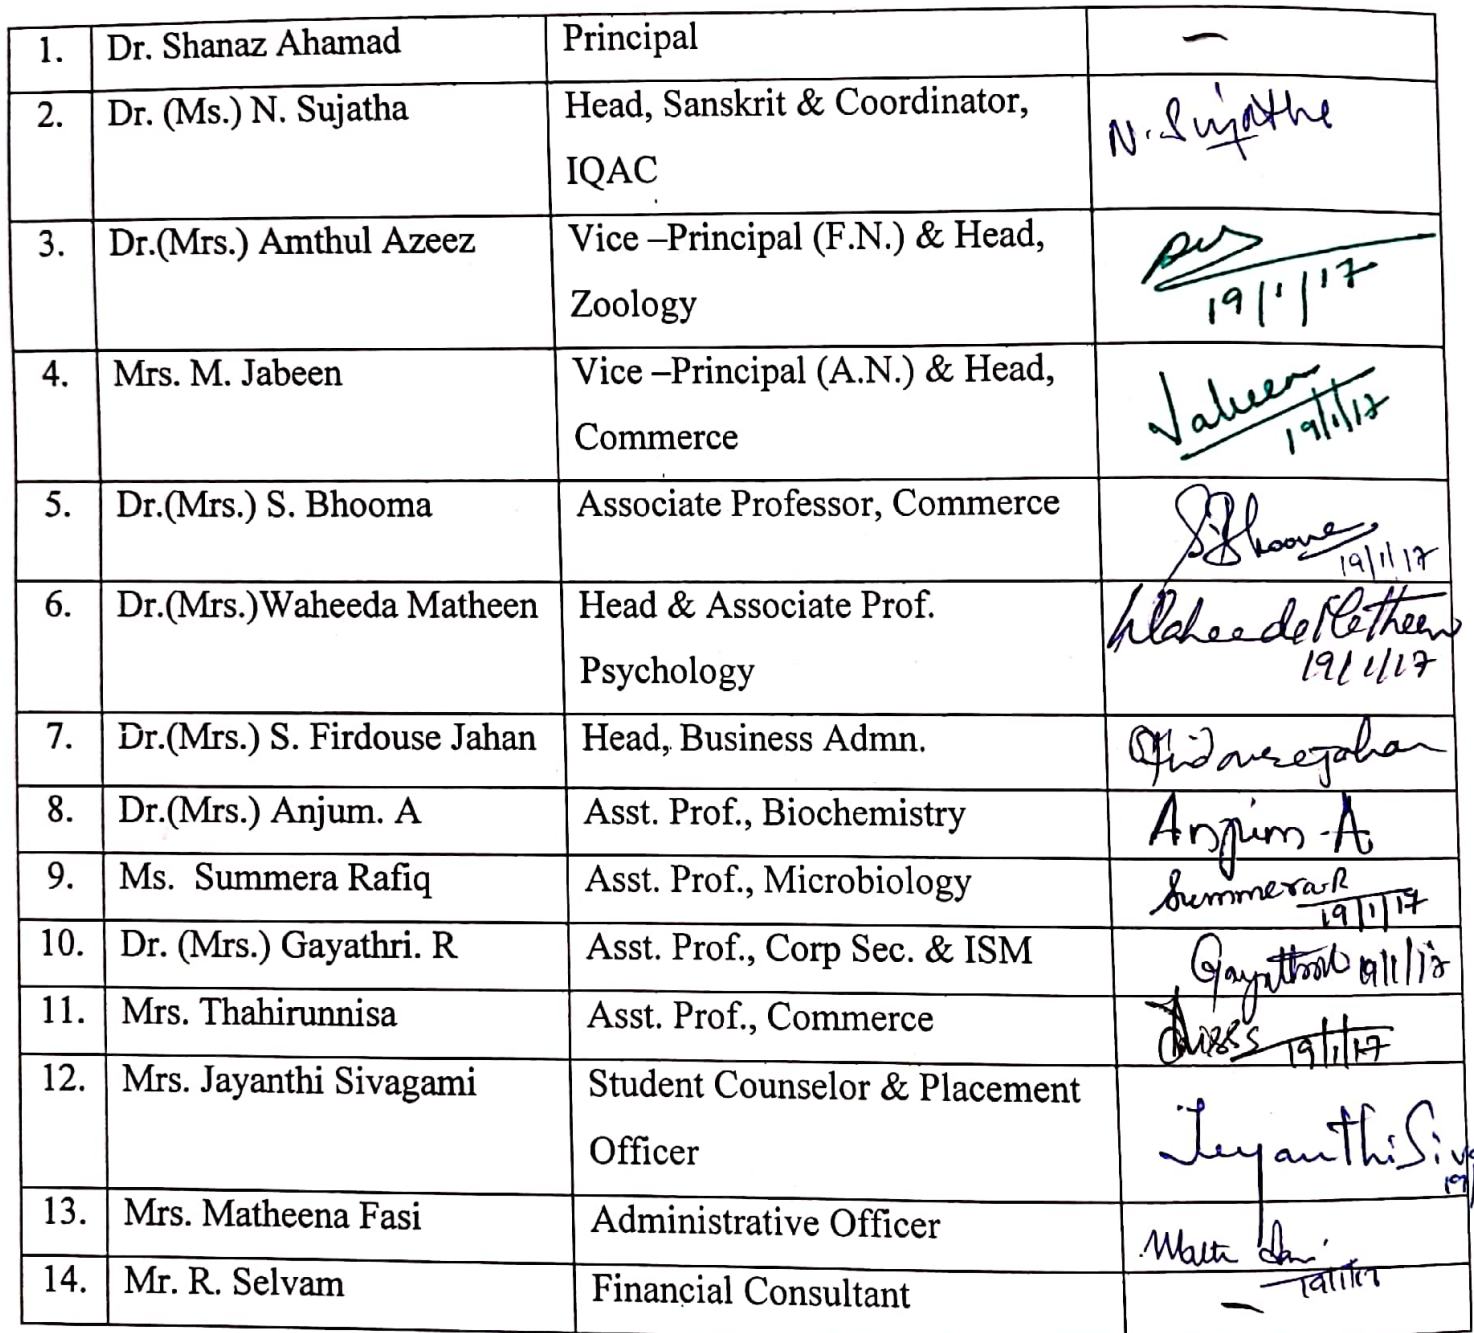 1. Dr. Shanaz Ahamad Principal –
2. Dr. (Ms.) N. Sujatha Head, Sanskrit & Coordinator, N. Sujatha
IQAC
3. Dr.(Mrs.) Amthul Azeez Vice –Principal (F.N.) & Head,
Zoology 19/1/17
4. Mrs. M. Jabeen Vice –Principal (A.N.) & Head, Jabeen
Commerce 19/1/17
5. Dr.(Mrs.) S. Bhooma Associate Professor, Commerce S. Bhooma
19/1/17
6. Dr.(Mrs.)Waheeda Matheen Head & Associate Prof. Waheeda Matheen
Psychology 19/1/17
7. Dr.(Mrs.) S. Firdouse Jahan Head, Business Admn. Firdousejahan
8. Dr.(Mrs.) Anjum. A Asst. Prof., Biochemistry Anjum - A
9. Ms. Summera Rafiq Asst. Prof., Microbiology Summera.R
19/1/17
10. Dr. (Mrs.) Gayathri. R Asst. Prof., Corp Sec. & ISM Gayathri 19/1/17
11. Mrs. Thahirunnisa Asst. Prof., Commerce 19/1/17
12. Mrs. Jayanthi Sivagami Student Counselor & Placement
Officer JeyanthiSiv
19/
13. Mrs. Matheena Fasi Administrative Officer
19/1/17
14. Mr. R. Selvam Financial Consultant –